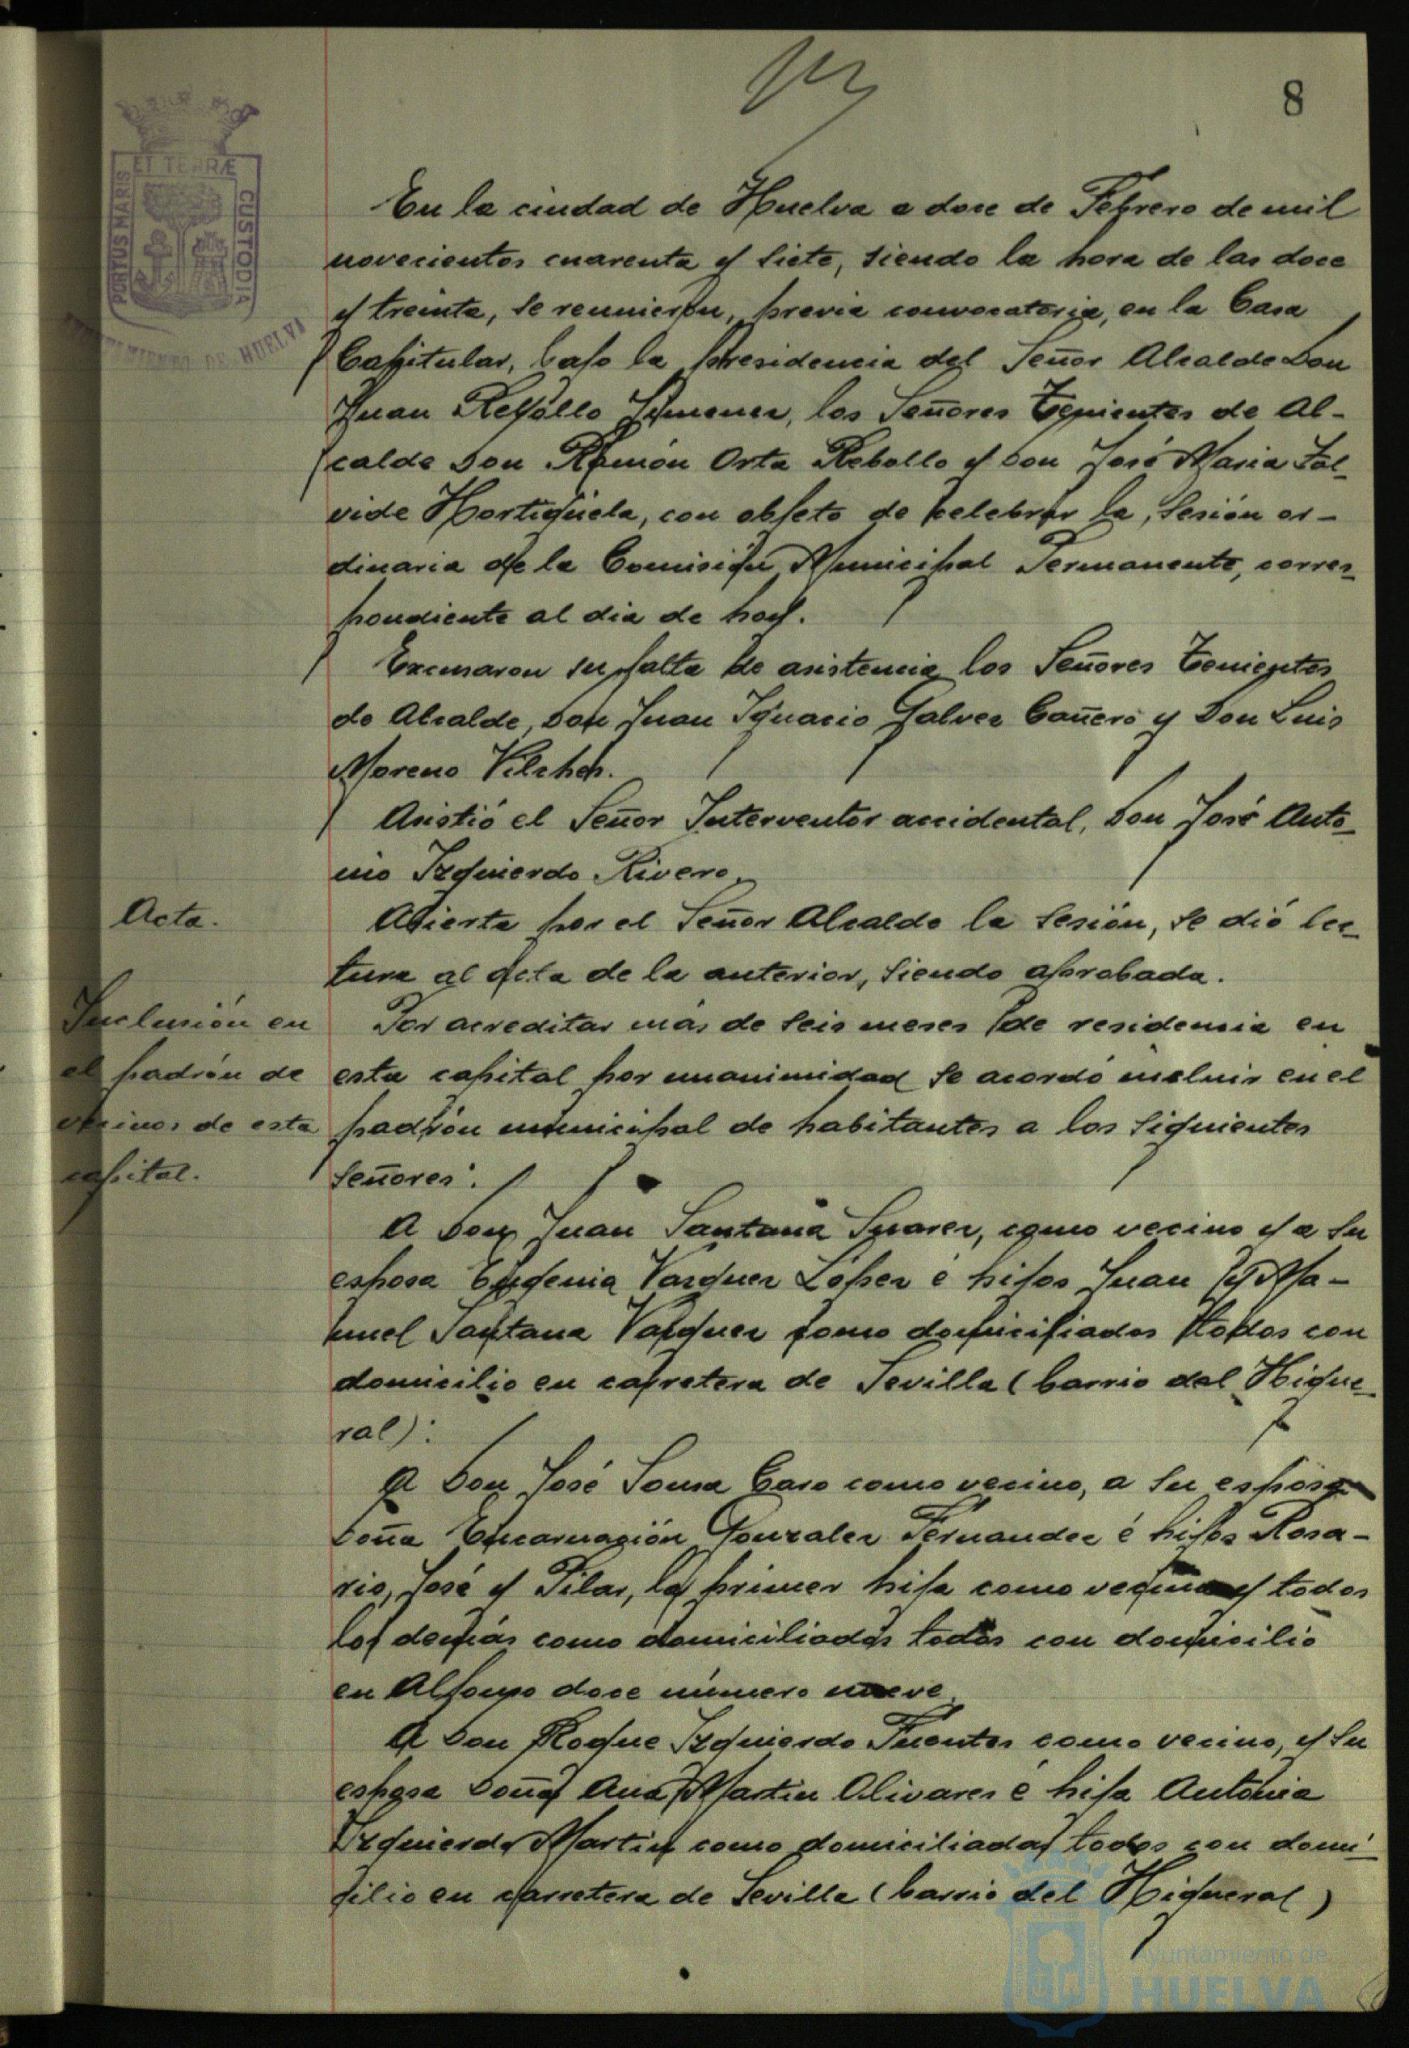 8
ET TERRÆ
PORTUS MARIS
CUSTODIA
AYUNTAMIENTO DE HUELVA
En la ciudad de Huelva a doce de Febrero de mil
novecientos cuarenta y siete, siendo la hora de las doce
y treinta, se reunieron, previa convocatoria, en la Casa
Capitular, bajo la presidencia del Señor Alcalde Don
Juan Rebollo Jimenez, los Señores Tenientes de Al-
calde Don Ramón Orta Rebollo y Don José Maria Sal-
vide Hortigüela, con objeto de celebrar la sesión or-
dinaria de la Comisión Municipal Permanente, corres-
pondiente al dia de hoy.
Excusaron su falta de asistencia los Señores Tenientes
de Alcalde, Don Juan Ignacio Galvez Cañero y Don Luis
Moreno Vilchez.
Asistió el Señor Interventor accidental, Don José Anto-
nio Izquierdo Rivero.
Acta.
Abierta por el Señor Alcalde la sesión, se dió lec-
tura al acta de la anterior, siendo aprobada.
Inclusión en
el padrón de
vecinos de esta
capital.
Por acreditar más de seis meses de residencia en
esta capital por unanimidad se acordó incluir en el
padrón municipal de habitantes a los siguientes
señores:
A Don Juan Santana Suarez, como vecino y a su
esposa Eugenia Vazquez López é hijos Juan y Ma-
nuel Santana Vazquez como domiciliados todos con
domicilio en carretera de Sevilla (barrio del Higue-
ral):
A Don José Sousa Caro como vecino, a su esposa
Doña Encarnación Gonzalez Fernandez é hijos Rosa-
rio, José y Pilar, la primer hija como vecina y todos
los demás como domiciliados todos con domicilio
en Alfonso doce número nueve.
A Don Roque Izquierdo Fuentes como vecino, y su
esposa Doña Ana Martin Olivares é hija Antonia
Izquierdo Martin como domiciliadas todos con domi-
cilio en carretera de Sevilla (barrio del Higueral)
Ayuntamiento de
HUELVA